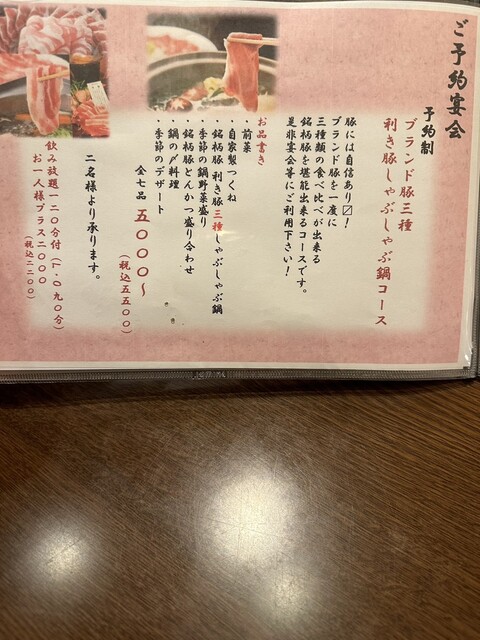 ご予約宴会
予約制
ブランド豚三種
利き豚しゃぶしゃぶ鍋コース
豚には自信あり〼!
ブランド豚を一度に
三種類の食べ比べが出来る
銘柄豚を堪能出来るコースです。
是非宴会等にご利用下さい!
お品書き
・前菜
・自家製つくね
・銘柄豚 利き豚三種しゃぶしゃぶ鍋
・季節の鍋野菜盛り
・銘柄豚とんかつ盛り合わせ
・鍋の〆料理
・季節のデザート
全七品 五〇〇〇~
(税込五五〇〇)
二名様より承ります。
飲み放題一二〇分付(L.O.九〇分)
お一人様プラス二〇〇〇
(税込二二〇〇)